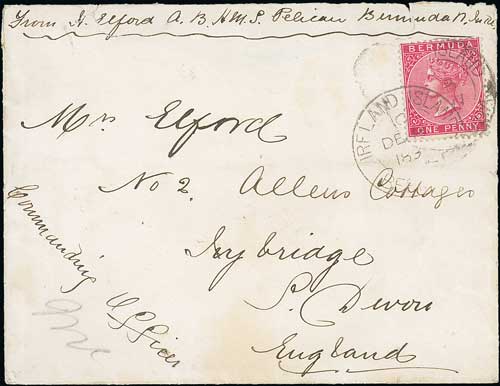 From H. Elford A. B. H.M.S. Pelican Bermuda
BERMUDA
ONE PENNY
IRELAND ISLAND
DE
Mrs Elford
No 2 Allens Cottages
Ivybridge
S. Devon
England
Commanding Officer